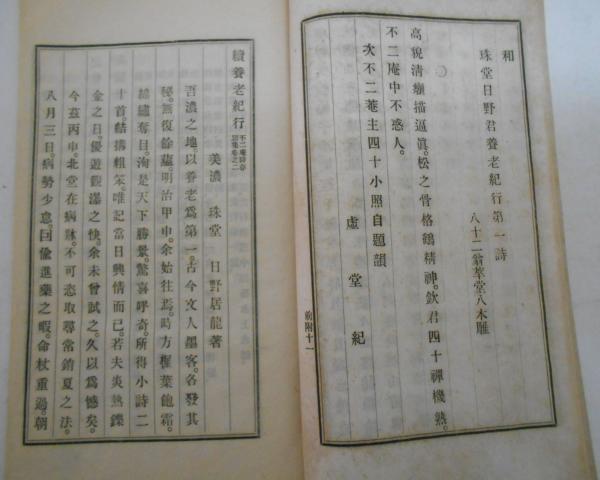 和
珠堂日野君養老紀行第一詩
八十二翁華堂八木雕
高貌清癯描逼眞。松之骨格鶴精神。欽君四十禪機熟。
不二庵中不惑人。
次不二菴主四十小照自題韻
虚堂紀
前附十一
續養老紀行 不二菴詩存
別集卷之二
美濃 珠堂 日野居龍著
吾濃之地。以養老爲第一。古今文人墨客。各發其
秘。無復餘蘊。明治甲申。余始往焉。時方楓葉飽霜。
錦繡奪目。洵是天下勝景。驚喜呼奇。所得小詩二
十首。結搆粗笨。唯記當日興情而已。若夫炎熱鑠
金之日。優遊觀瀑之快。余未曾試之。久以爲憾矣。
今茲丙申。北堂在病牀。不可恣取尋常銷夏之法。
八月三日。病勢少息。因偸進藥之暇。命杖重過。朝